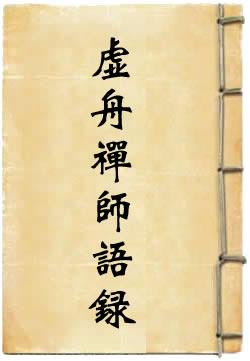 虛舟禪師語録